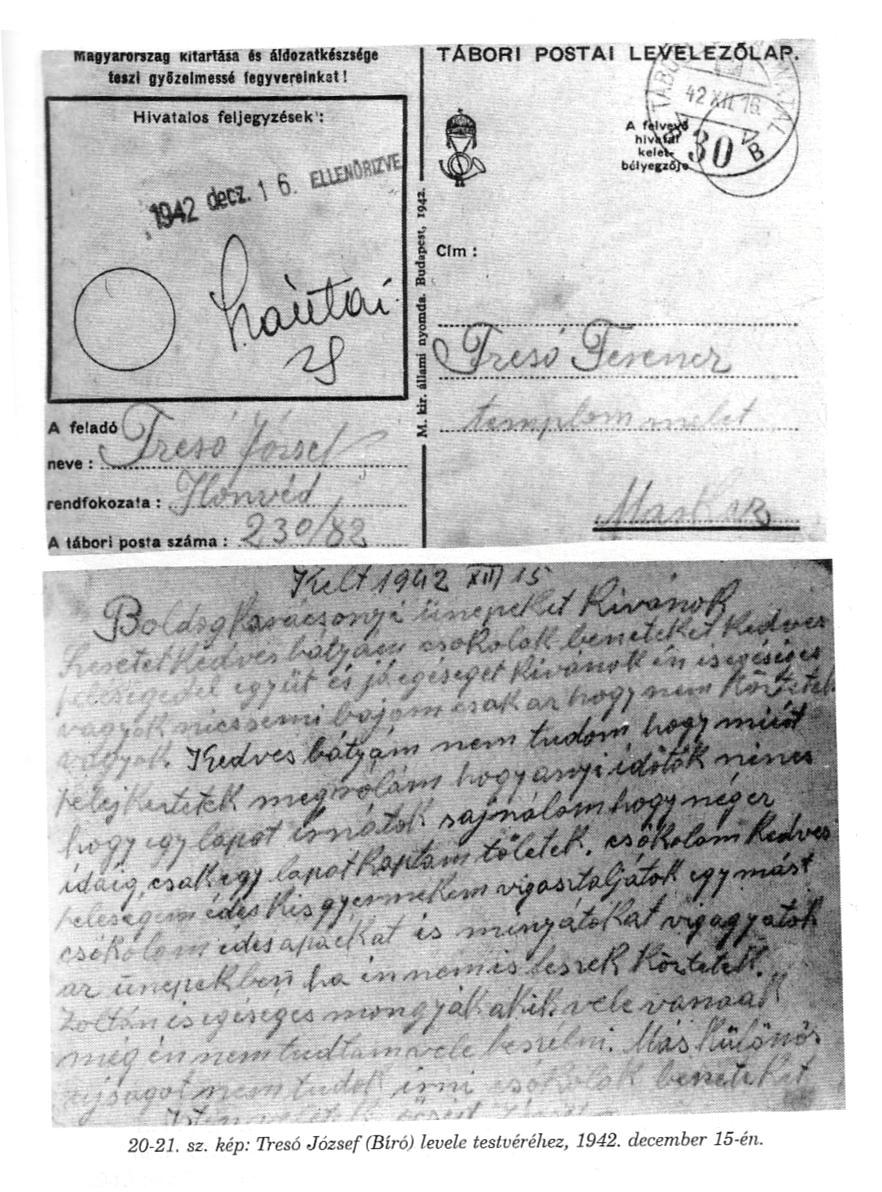 Magyarország kitartása és áldozatkészsége
teszi győzelmessé fegyvereinket!
Hivatalos feljegyzések:
1942 decz. 16. ELLENŐRIZVE
A feladó
neve: Tresó József
rendfokozata: Honvéd
A tábori posta száma: 230/82
M. kir. állami nyomda. Budapest, 1942.
TÁBORI POSTAI LEVELEZŐLAP.
42 XII 16
30
B
A felvevő
hivatal
kelet-
bélyegzője
Cím:
Tresó Ferencz
templom melet
Kelt 1942 XII 15
Boldog Karácsonyi ünepeket Kivánok
Szeretet Kedves bátyám csokolak beneteket Kedves
feleségedel együt és jó egéséget Kivánok én is egéséges
vagyok nics semi bajom csak az hogy nem Köztetek
vagyok. Kedves bátyám nem tudom hogy miért
felejtetek meg rolám hogy anyi időtök nincs
hogy egy lapot irnátok sajnálom hogy
idáig csak egy lapot Kaptam töletek. csókolom Kedves
feleségem édes Kis gyermekem vigasztaljátok egy mást
csókolom édes apáékat is vigagyatok
az ünepekben ha én nem is leszek Köztetek.
Zoltán is egéséges mongyák akik vele vanaak
még én nem tudtam vele beszélni. Más Különös
ujságot nem tudok irni csókolak beneteket
20-21. sz. kép: Tresó József (Bíró) levele testvéréhez, 1942. december 15-én.